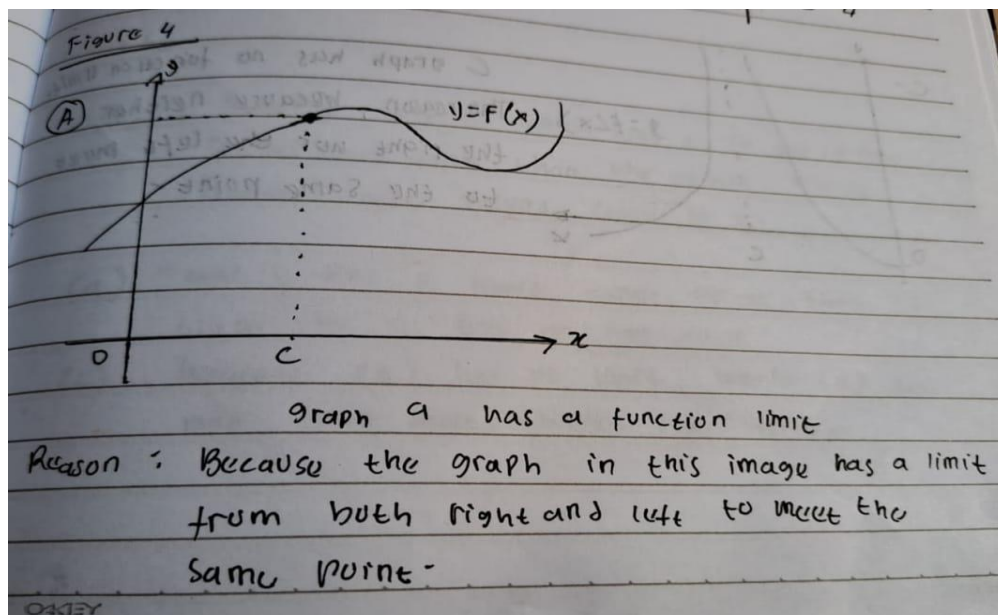 Figure 4
y
A
y=F(x)
O
C
x
graph a has a function limit
Reason : Because the graph in this image has a limit
from both right and left to meet the
same point.